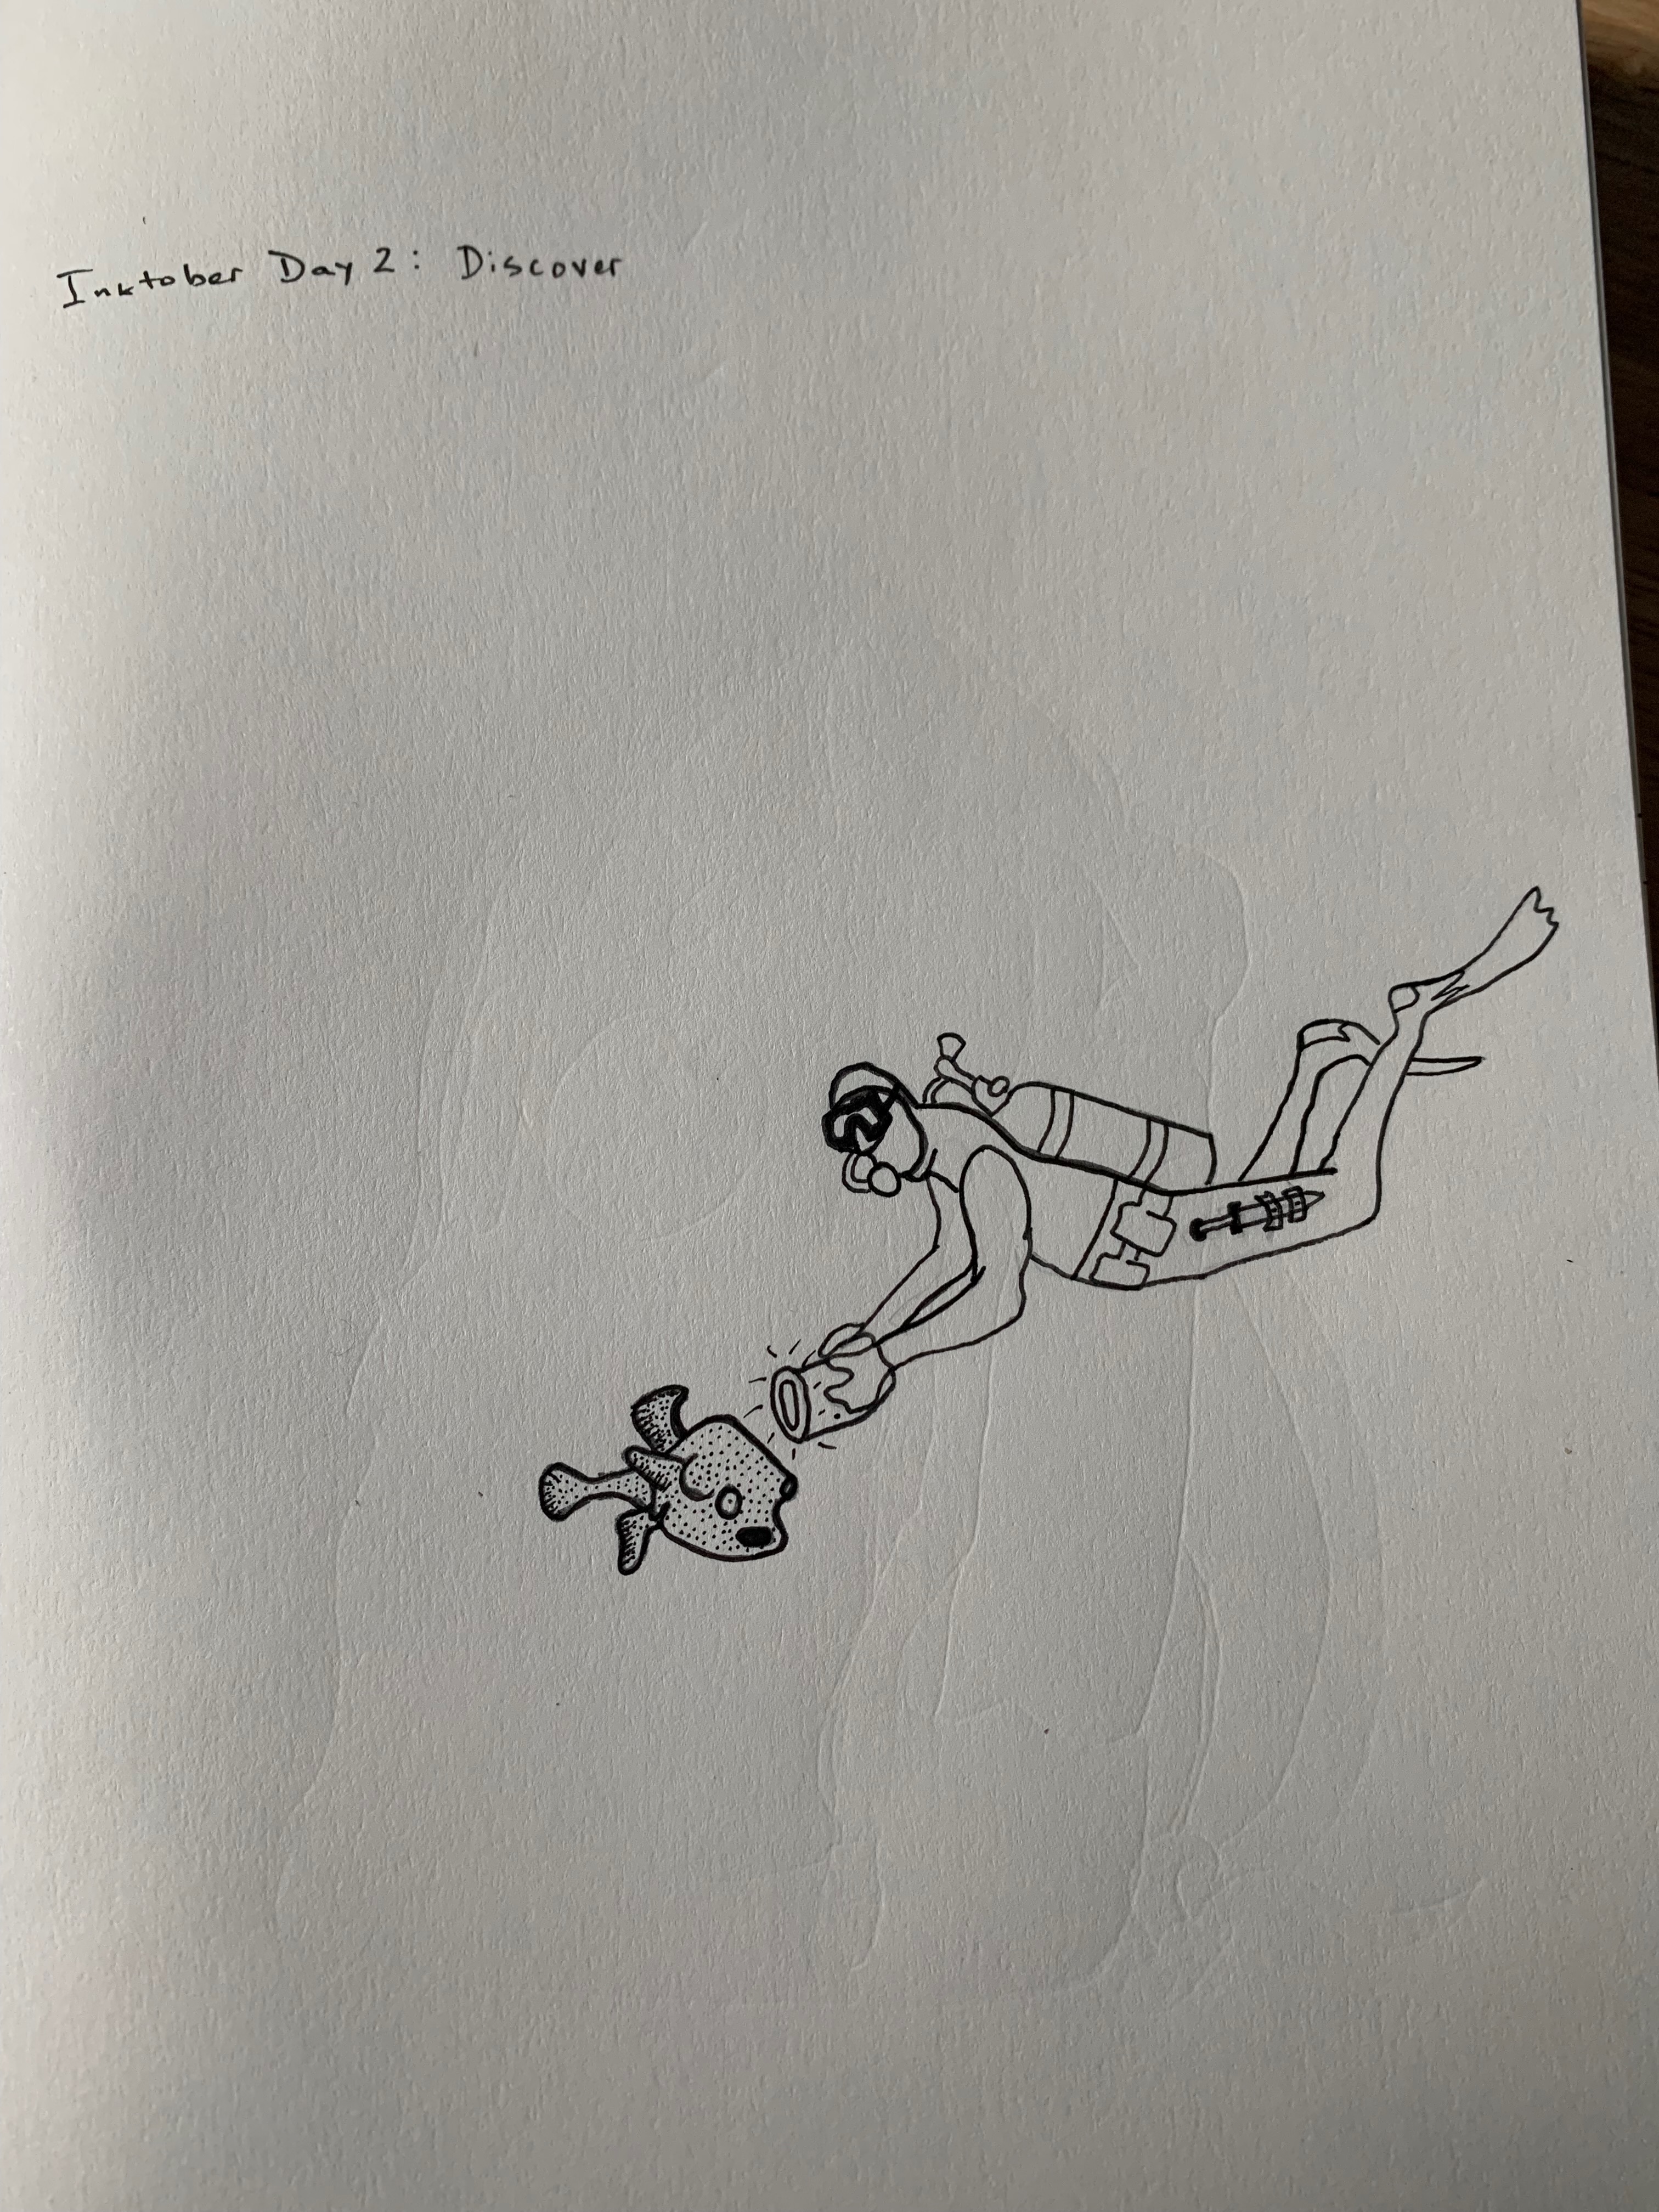 Inktober Day 2: Discover